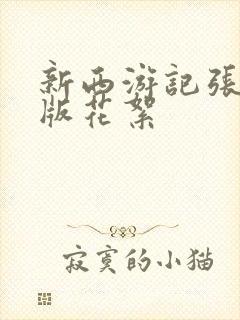 新西游記張
版花絮
寂寞的小猫